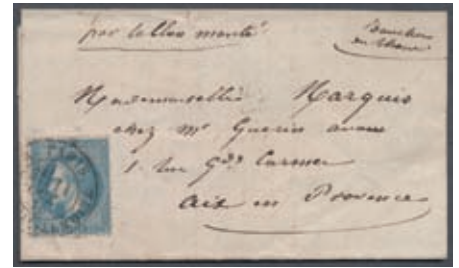 par ballon monté
Bouches
du Rhone
Mademoiselle Marquis
chez Mr Guerin avoué
1 rue Gde Carmes
Aix en Provence
PARIS